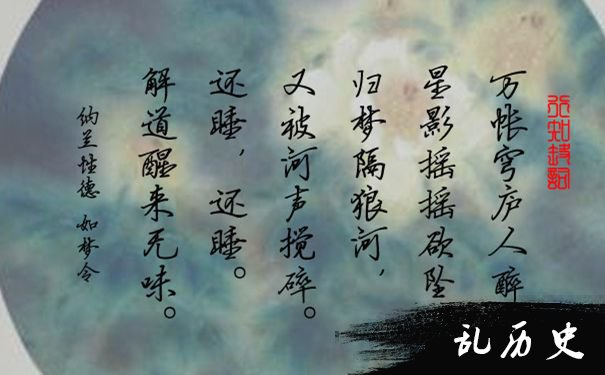 万帐穹庐人醉
星影摇摇欲坠
归梦隔狼河，
又被河声搅碎。
还睡，还睡。
解道醒来无味。
纳兰性德 如梦令
乱历史